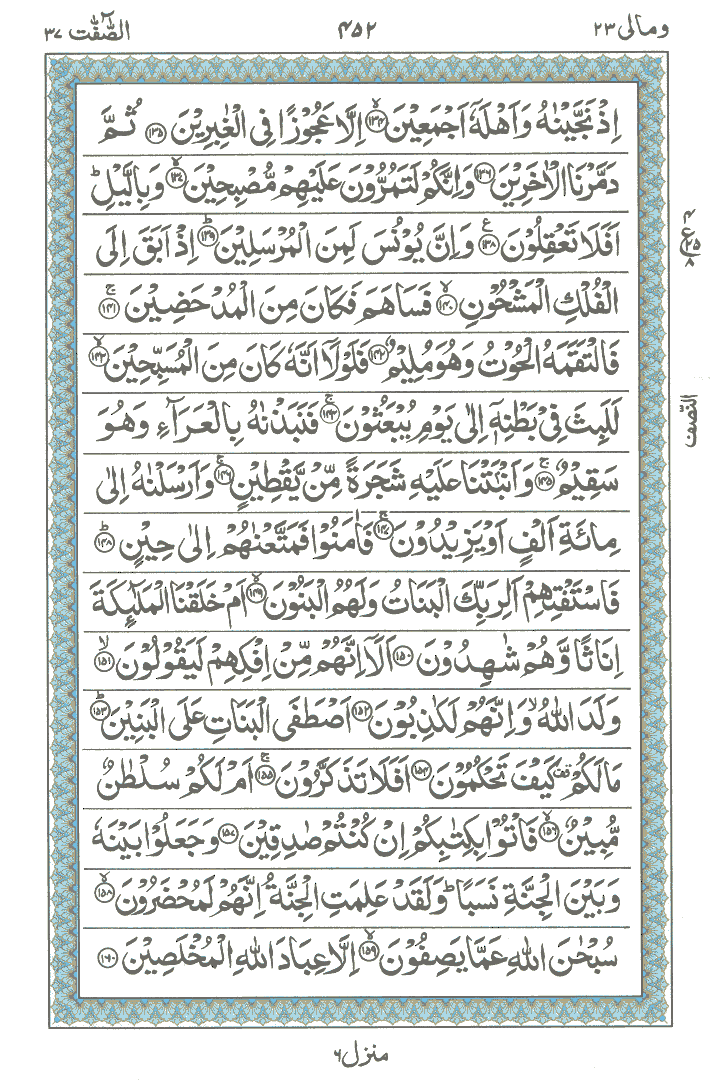 ومالی ٢٣ ٤٥٢ الصّٰٓفّٰت ٣٧
اِذْ نَجَّيْنٰهُ وَاَهْلَهٗٓ اَجْمَعِيْنَ ۙ﴿١٣٤﴾ اِلَّا عَجُوْزًا فِي الْغٰبِرِيْنَ ﴿١٣٥﴾ ثُمَّ
دَمَّرْنَا الْاٰخَرِيْنَ ﴿١٣٦﴾ وَاِنَّكُمْ لَتَمُرُّوْنَ عَلَيْهِمْ مُّصْبِحِيْنَ ۙ﴿١٣٧﴾ وَبِالَّيْلِ ؕ
اَفَلَا تَعْقِلُوْنَ ﴿١٣٨﴾ۧ وَاِنَّ يُوْنُسَ لَمِنَ الْمُرْسَلِيْنَ ؕ﴿١٣٩﴾ اِذْ اَبَقَ اِلَى
الْفُلْكِ الْمَشْحُوْنِ ۙ﴿١٤٠﴾ فَسَاهَمَ فَكَانَ مِنَ الْمُدْحَضِيْنَ ۚ﴿١٤١﴾
فَالْتَقَمَهُ الْحُوْتُ وَهُوَ مُلِيْمٌ ﴿١٤٢﴾ فَلَوْلَاۤ اَنَّهٗ كَانَ مِنَ الْمُسَبِّحِيْنَ ۙ﴿١٤٣﴾
لَلَبِثَ فِيْ بَطْنِهٖٓ اِلٰى يَوْمِ يُبْعَثُوْنَ ۚ﴿١٤٤﴾ فَنَبَذْنٰهُ بِالْعَرَآءِ وَهُوَ
سَقِيْمٌ ۚ﴿١٤٥﴾ وَاَنْۢبَتْنَا عَلَيْهِ شَجَرَةً مِّنْ يَّقْطِيْنٍ ۚ﴿١٤٦﴾ وَاَرْسَلْنٰهُ اِلٰى
مِائَةِ اَلْفٍ اَوْ يَزِيْدُوْنَ ۚ﴿١٤٧﴾ فَاٰمَنُوْا فَمَتَّعْنٰهُمْ اِلٰى حِيْنٍ ؕ﴿١٤٨﴾
فَاسْتَفْتِهِمْ اَلِرَبِّكَ الْبَنَاتُ وَلَهُمُ الْبَنُوْنَ ۙ﴿١٤٩﴾ اَمْ خَلَقْنَا الْمَلٰٓئِكَةَ
اِنَاثًا وَّهُمْ شٰهِدُوْنَ ﴿١٥٠﴾ اَلَاۤ اِنَّهُمْ مِّنْ اِفْكِهِمْ لَيَقُوْلُوْنَ ۙ﴿١٥١﴾
وَلَدَ اللّٰهُ ۙ وَاِنَّهُمْ لَكٰذِبُوْنَ ﴿١٥٢﴾ اَصْطَفَى الْبَنَاتِ عَلَى الْبَنِيْنَ ؕ﴿١٥٣﴾
مَا لَكُمْ قف كَيْفَ تَحْكُمُوْنَ ﴿١٥٤﴾ اَفَلَا تَذَكَّرُوْنَ ۚ﴿١٥٥﴾ اَمْ لَكُمْ سُلْطٰنٌ
مُّبِيْنٌ ۙ﴿١٥٦﴾ فَاْتُوْا بِكِتٰبِكُمْ اِنْ كُنْتُمْ صٰدِقِيْنَ ﴿١٥٧﴾ وَجَعَلُوْا بَيْنَهٗ
وَبَيْنَ الْجِنَّةِ نَسَبًا ؕ وَلَقَدْ عَلِمَتِ الْجِنَّةُ اِنَّهُمْ لَمُحْضَرُوْنَ ۙ﴿١٥٨﴾
سُبْحٰنَ اللّٰهِ عَمَّا يَصِفُوْنَ ۙ﴿١٥٩﴾ اِلَّا عِبَادَ اللّٰهِ الْمُخْلَصِيْنَ ﴿١٦٠﴾
٤ ع ٢٥ ٨
النّصف
منزل ٦